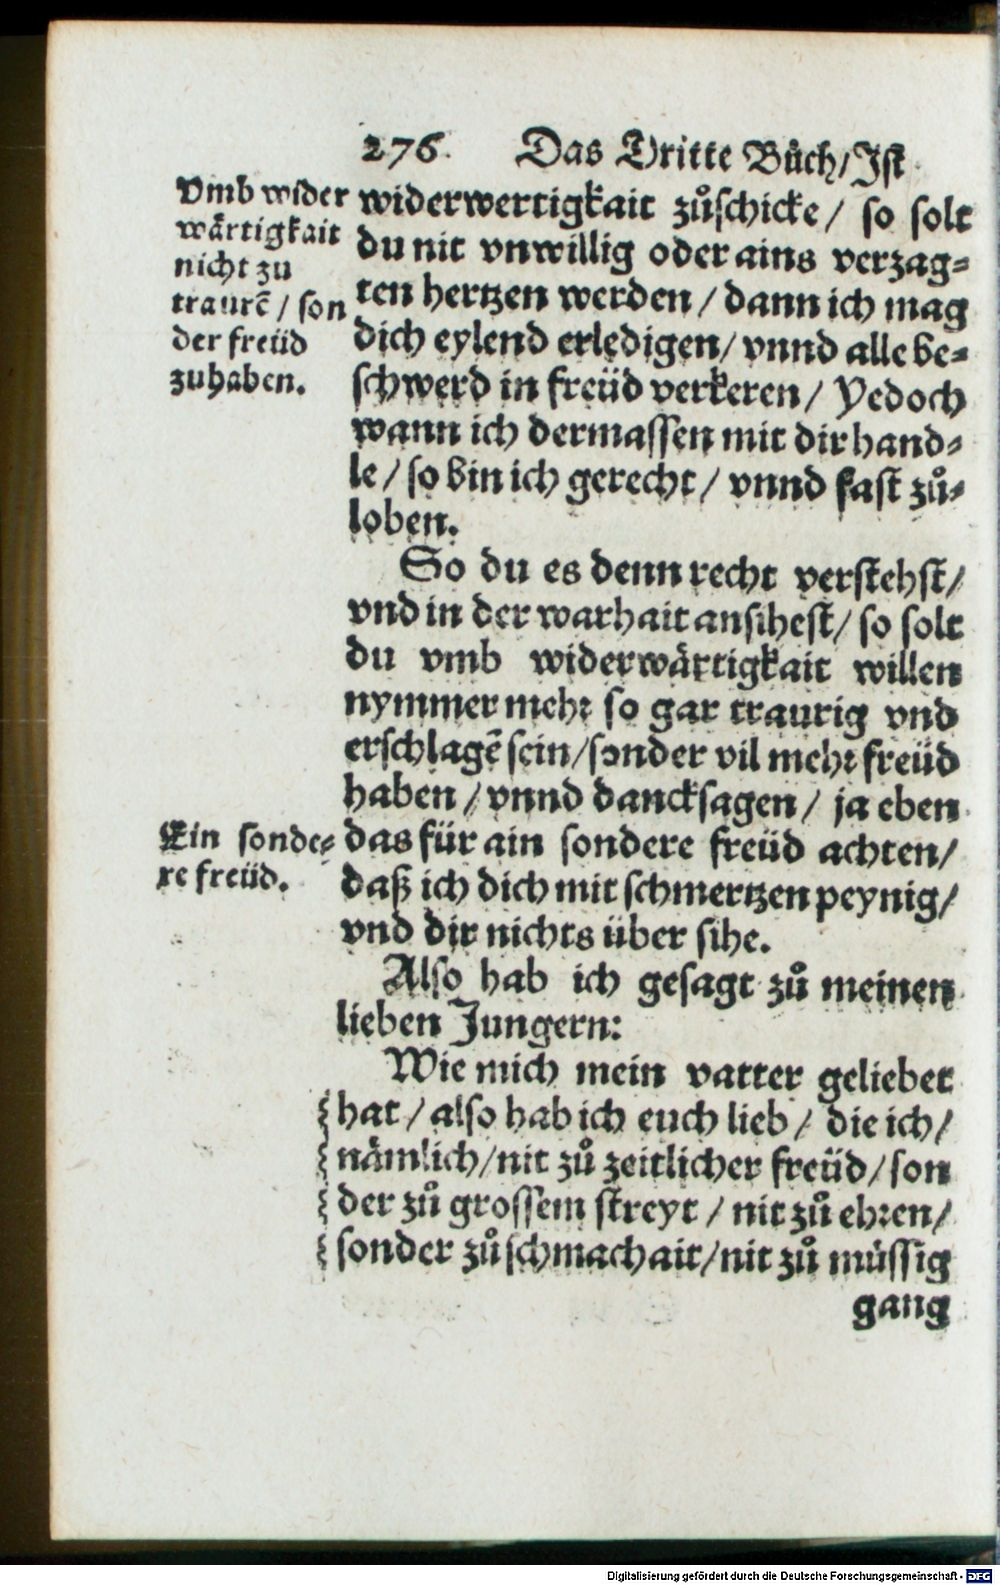 276. Das Dritte Bůch/Ist
Vmb wider
wärtigkait
nicht zu
traurẽ / son
der freüd
zuhaben.
widerwertigkait zůschicke / so solt
du nit vnwillig oder ains verzag-
ten hertzen werden / dann ich mag
dich eylend erledigen/ vnnd alle be-
schwerd in freüd verkeren / Yedoch
wann ich dermassen mit dir hand-
le / so bin ich gerecht / vnnd fast zů-
loben.
So du es denn recht verstehst/
vnd in der warhait ansihest/ so solt
du vmb widerwärtigkait willen
nymmer mehr so gar traurig vnd
erschlagẽ sein/sonder vil mehr freüd
haben / vnnd dancksagen / ja eben
Ein sonde-
re freüd.
das für ain sondere freüd achten/
daß ich dich mit schmertzen peynig/
vnd dir nichts über sihe.
Also hab ich gesagt zů meinen
lieben Jungern:
Wie mich mein vatter geliebet
hat / also hab ich euch lieb / die ich/
nämlich/nit zů zeitlicher freüd/son
der zů grossem streyt / nit zů ehren/
sonder zů schmachait/nit zů müssig
gang
Digitalisierung gefördert durch die Deutsche Forschungsgemeinschaft - DFG